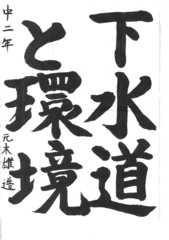 下水道
と環境
中二年
元木雄造